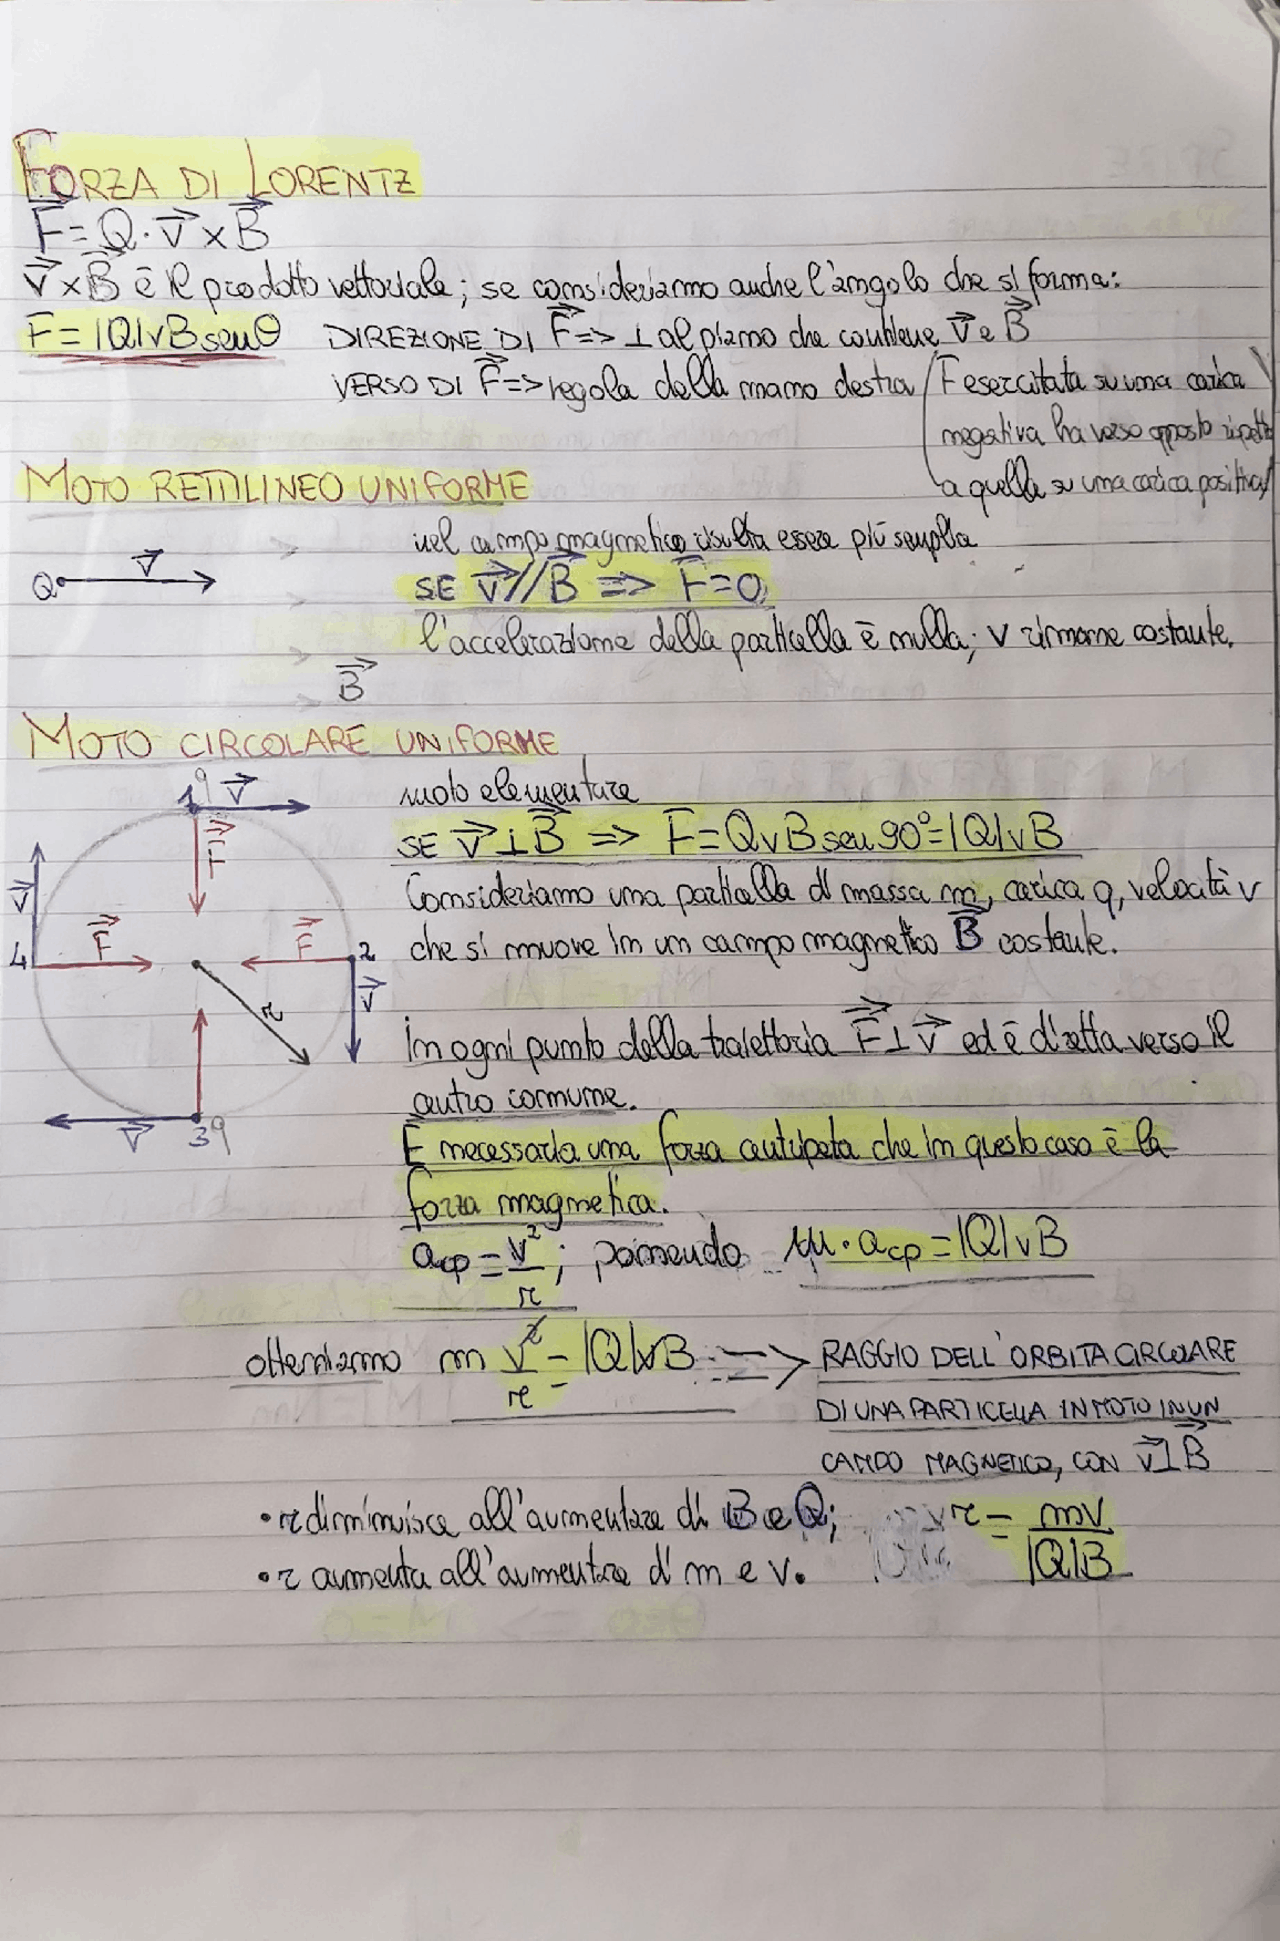 FORZA DI LORENTZ
F⃗ = Q · v⃗ × B⃗
v⃗ × B⃗ è il prodotto vettoriale; se consideriamo anche l'angolo che si forma:
F = |Q|vB senθ DIREZIONE DI F⃗ => ⊥ al piano che contiene v⃗ e B⃗
VERSO DI F⃗ => regola della mano destra (F esercitata su una carica
negativa ha verso opposto rispetto
a quella su una carica positiva)
MOTO RETTILINEO UNIFORME
nel campo magnetico risulta essere più semplice
Q v⃗
SE v⃗ // B⃗ => F = 0
l'accelerazione della particella è nulla; v rimane costante.
B⃗
MOTO CIRCOLARE UNIFORME
1 q v⃗
moto elementare
SE v⃗ ⊥ B⃗ => F = QvB sen90° = |Q|vB
F⃗
Consideriamo una particella di massa m, carica q, velocità v
v⃗
4 F⃗ F⃗ 2
che si muove in un campo magnetico B⃗ costante.
r v⃗
in ogni punto della traiettoria F⃗ ⊥ v⃗ ed è diretta verso il
centro comune.
v⃗ 3 q
È necessaria una forza centripeta che in questo caso è la
forza magnetica.
acp = v²/r ; ponendo m · acp = |Q|vB
otteniamo m v²/r = |Q|vB => RAGGIO DELL'ORBITA CIRCOLARE
DI UNA PARTICELLA IN MOTO IN UN
CAMPO MAGNETICO, CON v⃗ ⊥ B⃗
• r diminuisce all'aumentare di B e Q;
r = mv/|Q|B
• r aumenta all'aumentare di m e v.